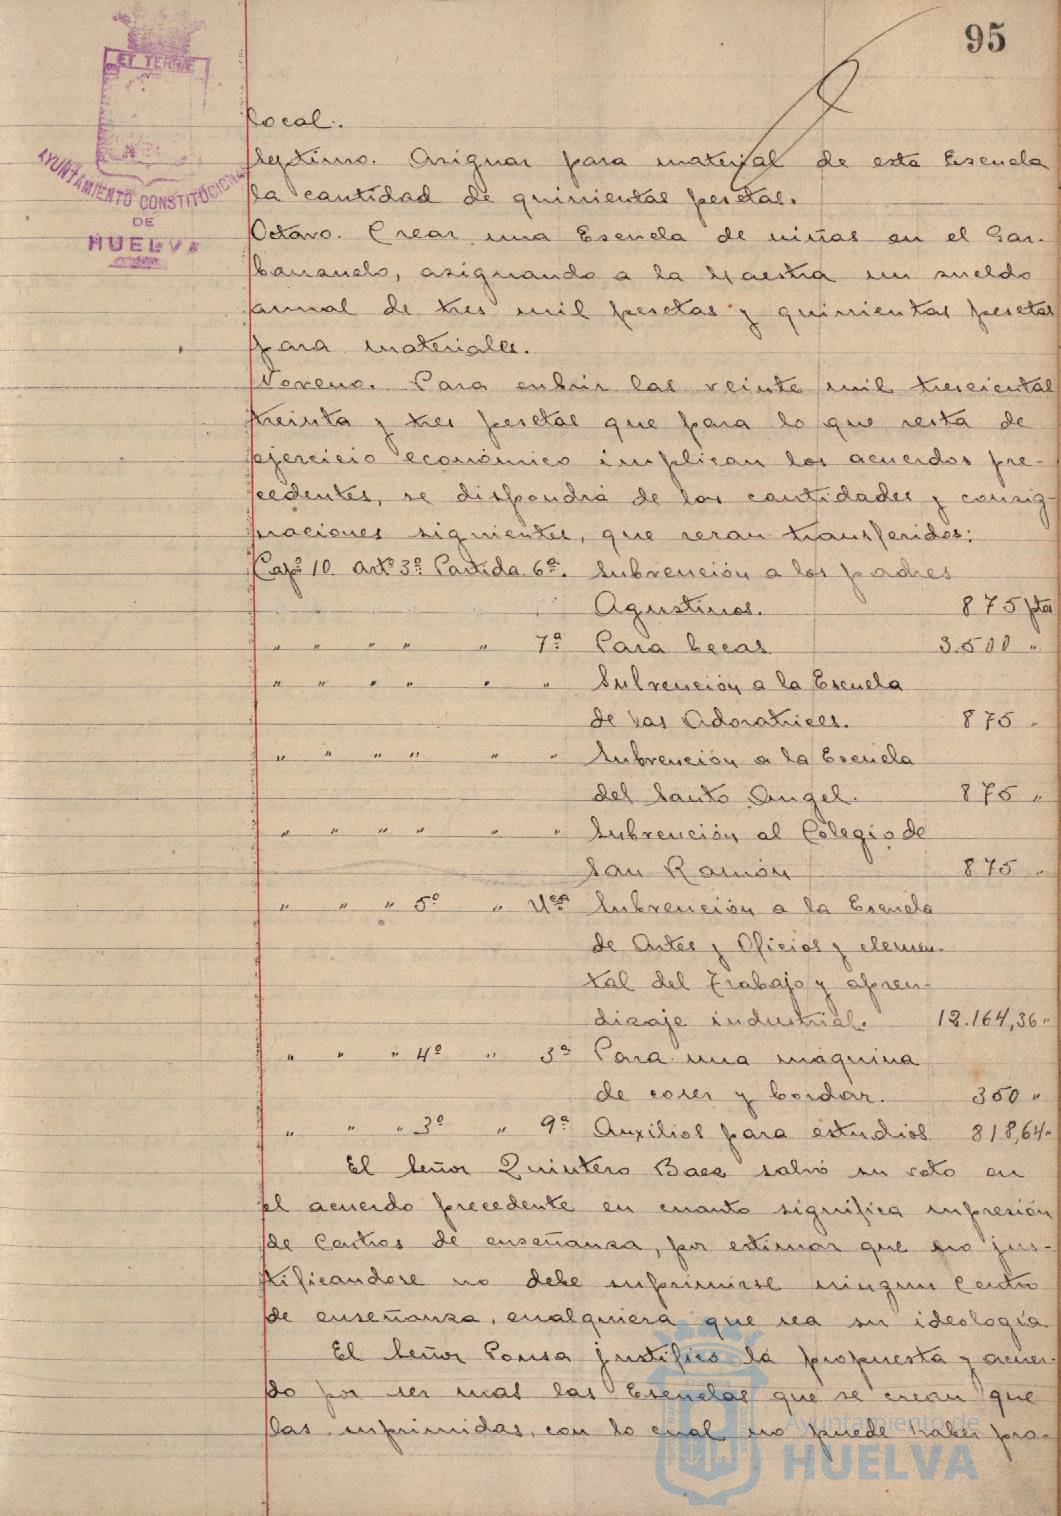 95
ET TERRÆ
AYUNTAMIENTO CONSTITUCIONAL
DE
HUELVA
local.
Septimo. Asignar para material de esta Escuela
la cantidad de quinientas pesetas.
Octavo. Crear una Escuela de niñas en el Gar-
banzuelo, asignando a la Maestra un sueldo
anual de tres mil pesetas y quinientas pesetas
para materiales.
Noveno. Para cubrir las veinte mil trescientas
treinta y tres pesetas que para lo que resta de
ejercicio económico implican los acuerdos pre-
cedentes, se dispondrá de las cantidades y consig-
naciones siguientes, que seran transferidos:
Capº 10 artº 3º Partida 6ª. Subvención a los padres
Agustinos. 875 ptas
" " " " " 7ª Para becas 3.500 "
" " " " " " Subvención a la Escuela
de las Adoratrices. 875 "
" " " " " " Subvención a la Escuela
del Santo Angel. 875 "
" " " " " " Subvención al Colegio de
San Ramón 875 "
" " " 5º " Uca Subvención a la Escuela
de Artes y Oficios y elemen-
tal del Trabajo y apren-
dizaje industrial. 12.164,36 "
" " " 4º " 3ª Para una maquina
de coser y bordar. 350 "
" " " 3º " 9ª Auxilios para estudios 818,64 "
El Señor Quintero Baez salvó su voto en
el acuerdo precedente en cuanto significa supresión
de Centros de enseñanza, por estimar que no jus-
tificandose no debe suprimirse ningun Centro
de enseñanza, cualquiera que sea su ideología
El Señor Ponsa justificó la propuesta y acuer-
do por ser mas las Escuelas que se crean que
las suprimidas, con lo cual no puede haber pra-
Ayuntamiento de
HUELVA